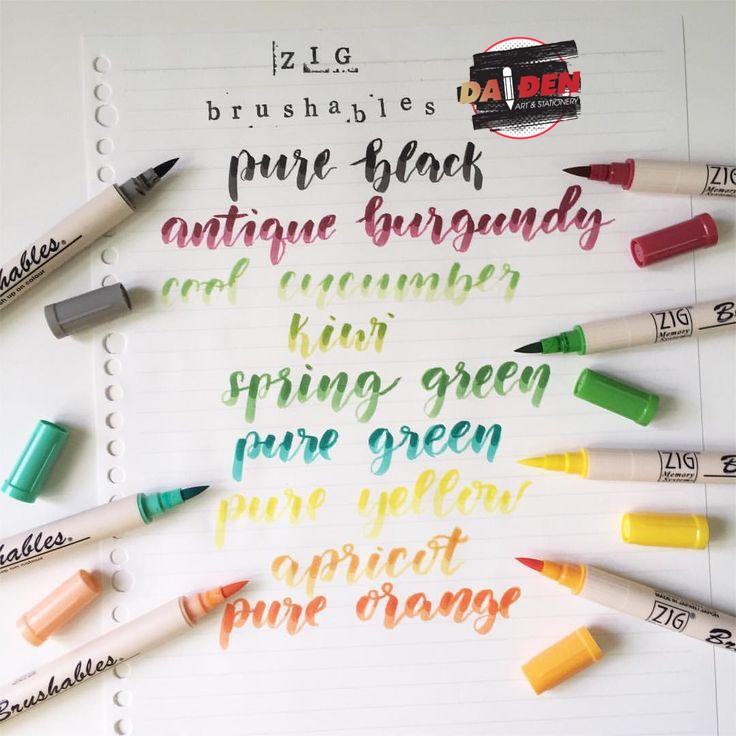 ZIG
brushables
DAIDEN
ART & STATIONERY
pure black
antique burgundy
cool cucumber
kiwi
spring green
pure green
pure yellow
apricot
pure orange
hables®
sh up on colour
ables.
Brushables.®
ZIG
Memory System
ZIG
Memory System
B
ZIG
Memory System
B
MADE IN JAPAN / JAPON
ZIG
Bru